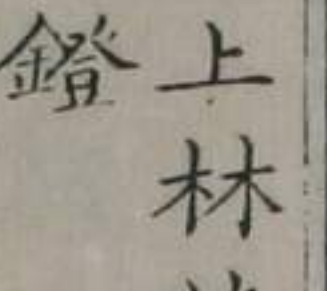 上林
鐙